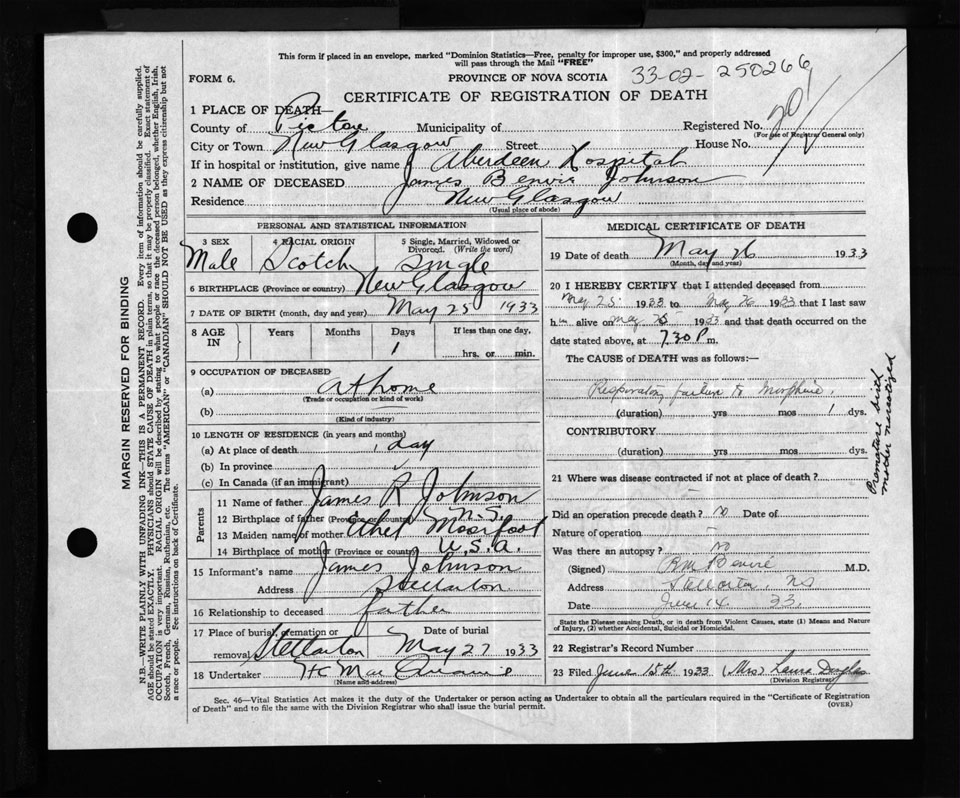 This form if placed in an envelope, marked "Dominion Statistics—Free, penalty for improper use, $300," and properly addressed
will pass through the Mail "FREE"
FORM 6.
PROVINCE OF NOVA SCOTIA
33-02-250266
CERTIFICATE OF REGISTRATION OF DEATH
1 PLACE OF DEATH—
County of Pictou Municipality of Registered No. 201
(For use of Registrar General only)
City or Town New Glasgow Street House No.
If in hospital or institution, give name Aberdeen Hospital
2 NAME OF DECEASED James Benvie Johnson
Residence New Glasgow
(Usual place of abode)
PERSONAL AND STATISTICAL INFORMATION
3 SEX 4 RACIAL ORIGIN 5 Single, Married, Widowed or Divorced. (Write the word)
Male Scotch Single
6 BIRTHPLACE (Province or country) New Glasgow
7 DATE OF BIRTH (month, day and year) May 25 1933
8 AGE IN Years Months Days If less than one day,
1 hrs. or min.
9 OCCUPATION OF DECEASED
(a) at home
(Trade or occupation or kind of work)
(b)
(Kind of industry)
10 LENGTH OF RESIDENCE (in years and months)
(a) At place of death 1 day
(b) In province
(c) In Canada (if an immigrant)
Parents
11 Name of father James R Johnson
12 Birthplace of father (Province or country) N.S.
13 Maiden name of mother Ethel
14 Birthplace of mother (Province or country) U.S.A.
15 Informant's name James Johnson
Address Stellarton
16 Relationship to deceased father
17 Place of burial, cremation or removal Stellarton Date of burial May 27 1933
18 Undertaker H C Mac
(Name and address)
MEDICAL CERTIFICATE OF DEATH
19 Date of death May 26 1933
(Month, day and year)
20 I HEREBY CERTIFY that I attended deceased from
May 25 1933 to May 26 1933 that I last saw
him alive on May 1933 and that death occurred on the
date stated above, at 7.30 P.m.
The CAUSE OF DEATH was as follows:—
Respiratory failure to Morphine.
(duration) yrs mos 1 dys.
CONTRIBUTORY
(duration) yrs mos dys.
Premature birth
mother narcotized
21 Where was disease contracted if not at place of death?
Did an operation precede death? no Date of
Nature of operation
Was there an autopsy? no
(Signed) Benvie M.D.
Address Stellarton, NS
Date June 14 33.
State the Disease causing Death, or in death from Violent Causes, state (1) Means and Nature
of Injury, (2) whether Accidental, Suicidal or Homicidal.
22 Registrar's Record Number
23 Filed June 15th 1933 (Mrs) Laura Douglas
(Division Registrar)
Sec. 46—Vital Statistics Act makes it the duty of the Undertaker or person acting as Undertaker to obtain all the particulars required in the "Certificate of Registration
of Death" and to file the same with the Division Registrar who shall issue the burial permit.
(OVER)
MARGIN RESERVED FOR BINDING
N.B.—WRITE PLAINLY WITH UNFADING INK—THIS IS A PERMANENT RECORD. Every item of information should be carefully supplied.
AGE should be stated EXACTLY. PHYSICIANS should STATE CAUSE OF DEATH in plain terms, so that it may be properly classified. Exact statement of
OCCUPATION is very important. RACIAL ORIGIN will be described by stating to what people or race the deceased person belonged, whether English, Irish,
Scotch, French, German, Russian, Ruthenian, etc. The terms "AMERICAN" or "CANADIAN" SHOULD NOT BE USED as they express citizenship but not
a race or people. See instructions on back of Certificate.